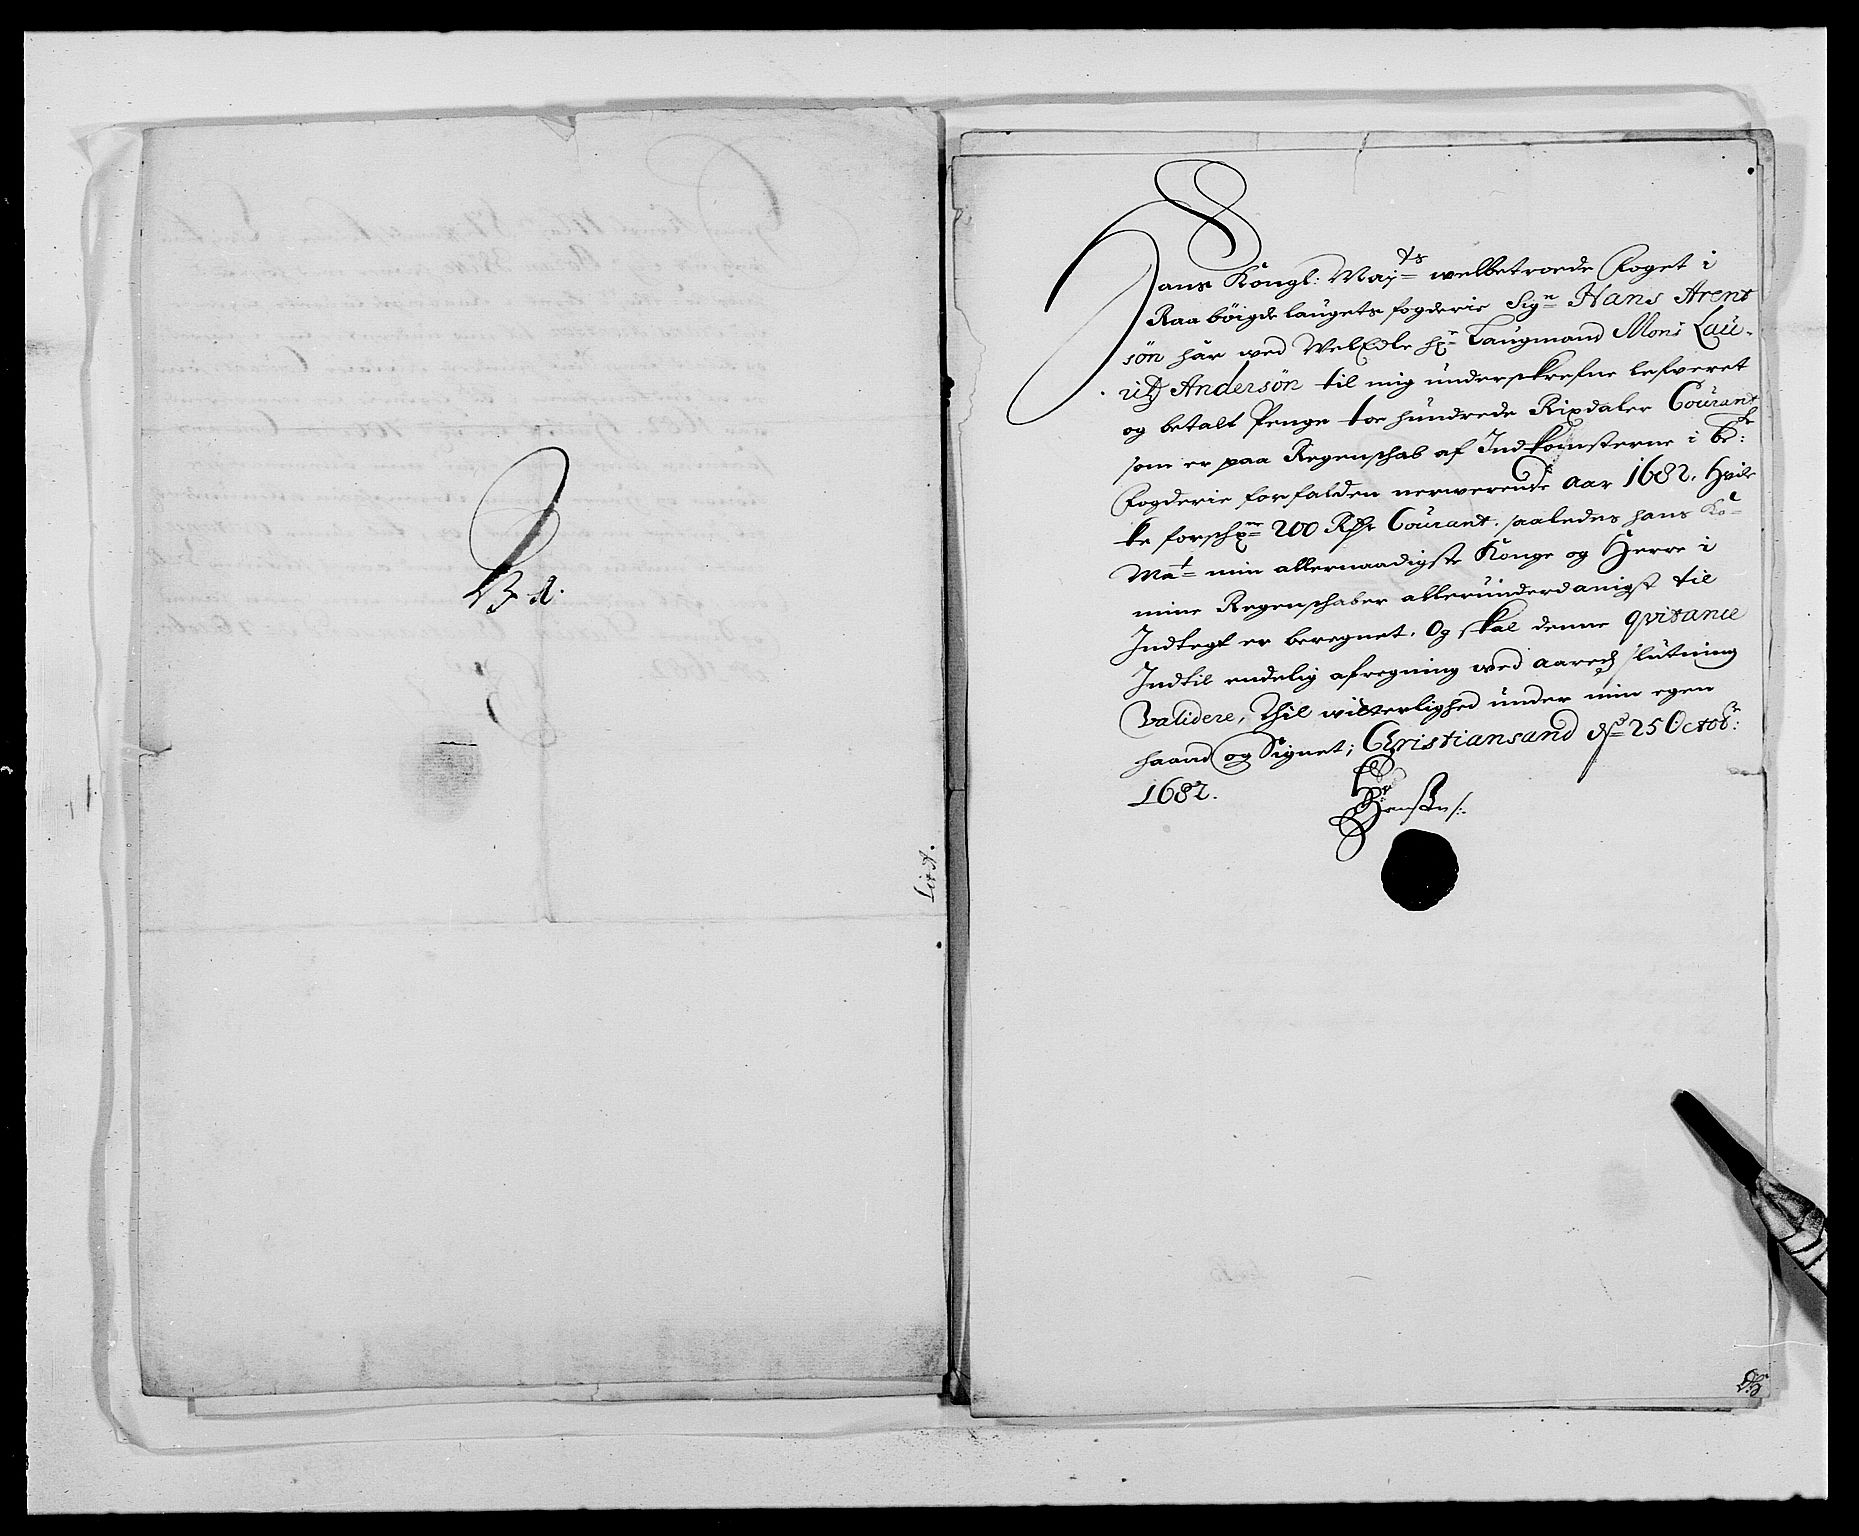 B d.
Lit A.
Hans Kongl: Maj:ts welbetroede Foget i
Raabøigdelaugets fogderie Sig:r Hans Arent
søn har wed WelEdle Hr: Laugmand Mons Lau-
ritz Andersøn til mig underskrefne lefveret
og betalt Penge toe hundrede Rixdaler Courant
som er paa Regenschab af Indkomsterne i be:te
Fogderie forfalden nerwerende Aar 1682. Hvil-
ke forschr:ne 200 Rdr Courant, saaledes hans Ko:
Ma:t min allernaadigste Konge og Herre i
mine Regenschaber allerunderdanigst til
Indtegt er beregnet. Og skal denne qvitance
Indtil endelig afregning wed aareds slutning
Validere, Thil witterlighed under min egen
haand og Signet; Christiansand d: 25 Octob:r:
1682.